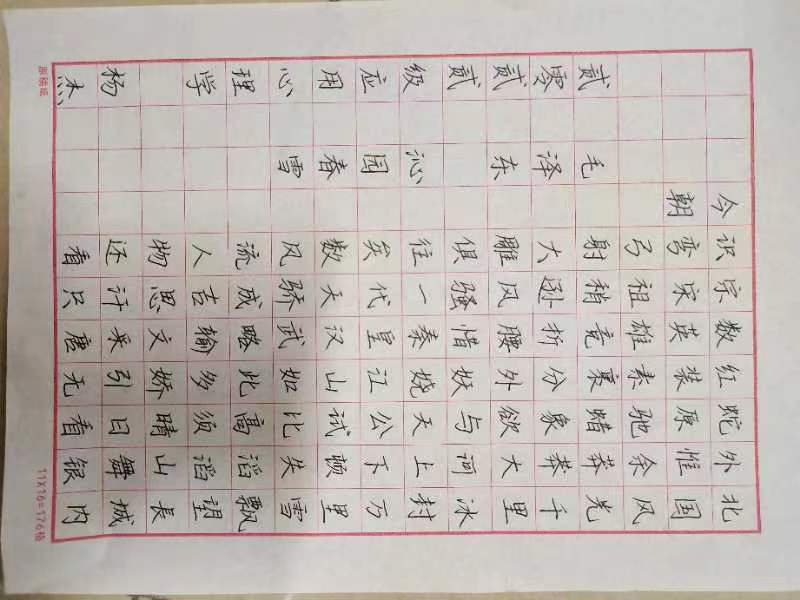 北国风光千里冰封万里雪飘望長城内
外惟余莽莽大河上下顿失滔滔山舞银
蛇原驰蜡象欲与天公试比高须晴日看
红装素裹分外妖娆江山如此多娇引无
数英雄竞折腰惜秦皇汉武略输文采唐
宗宋祖稍逊风骚一代天骄成吉思汗只
识弯弓射大雕俱往矣数风流人物还看
今朝
毛泽东 沁园春雪
贰零贰贰级应用心理学 杨杰
11X16=176格